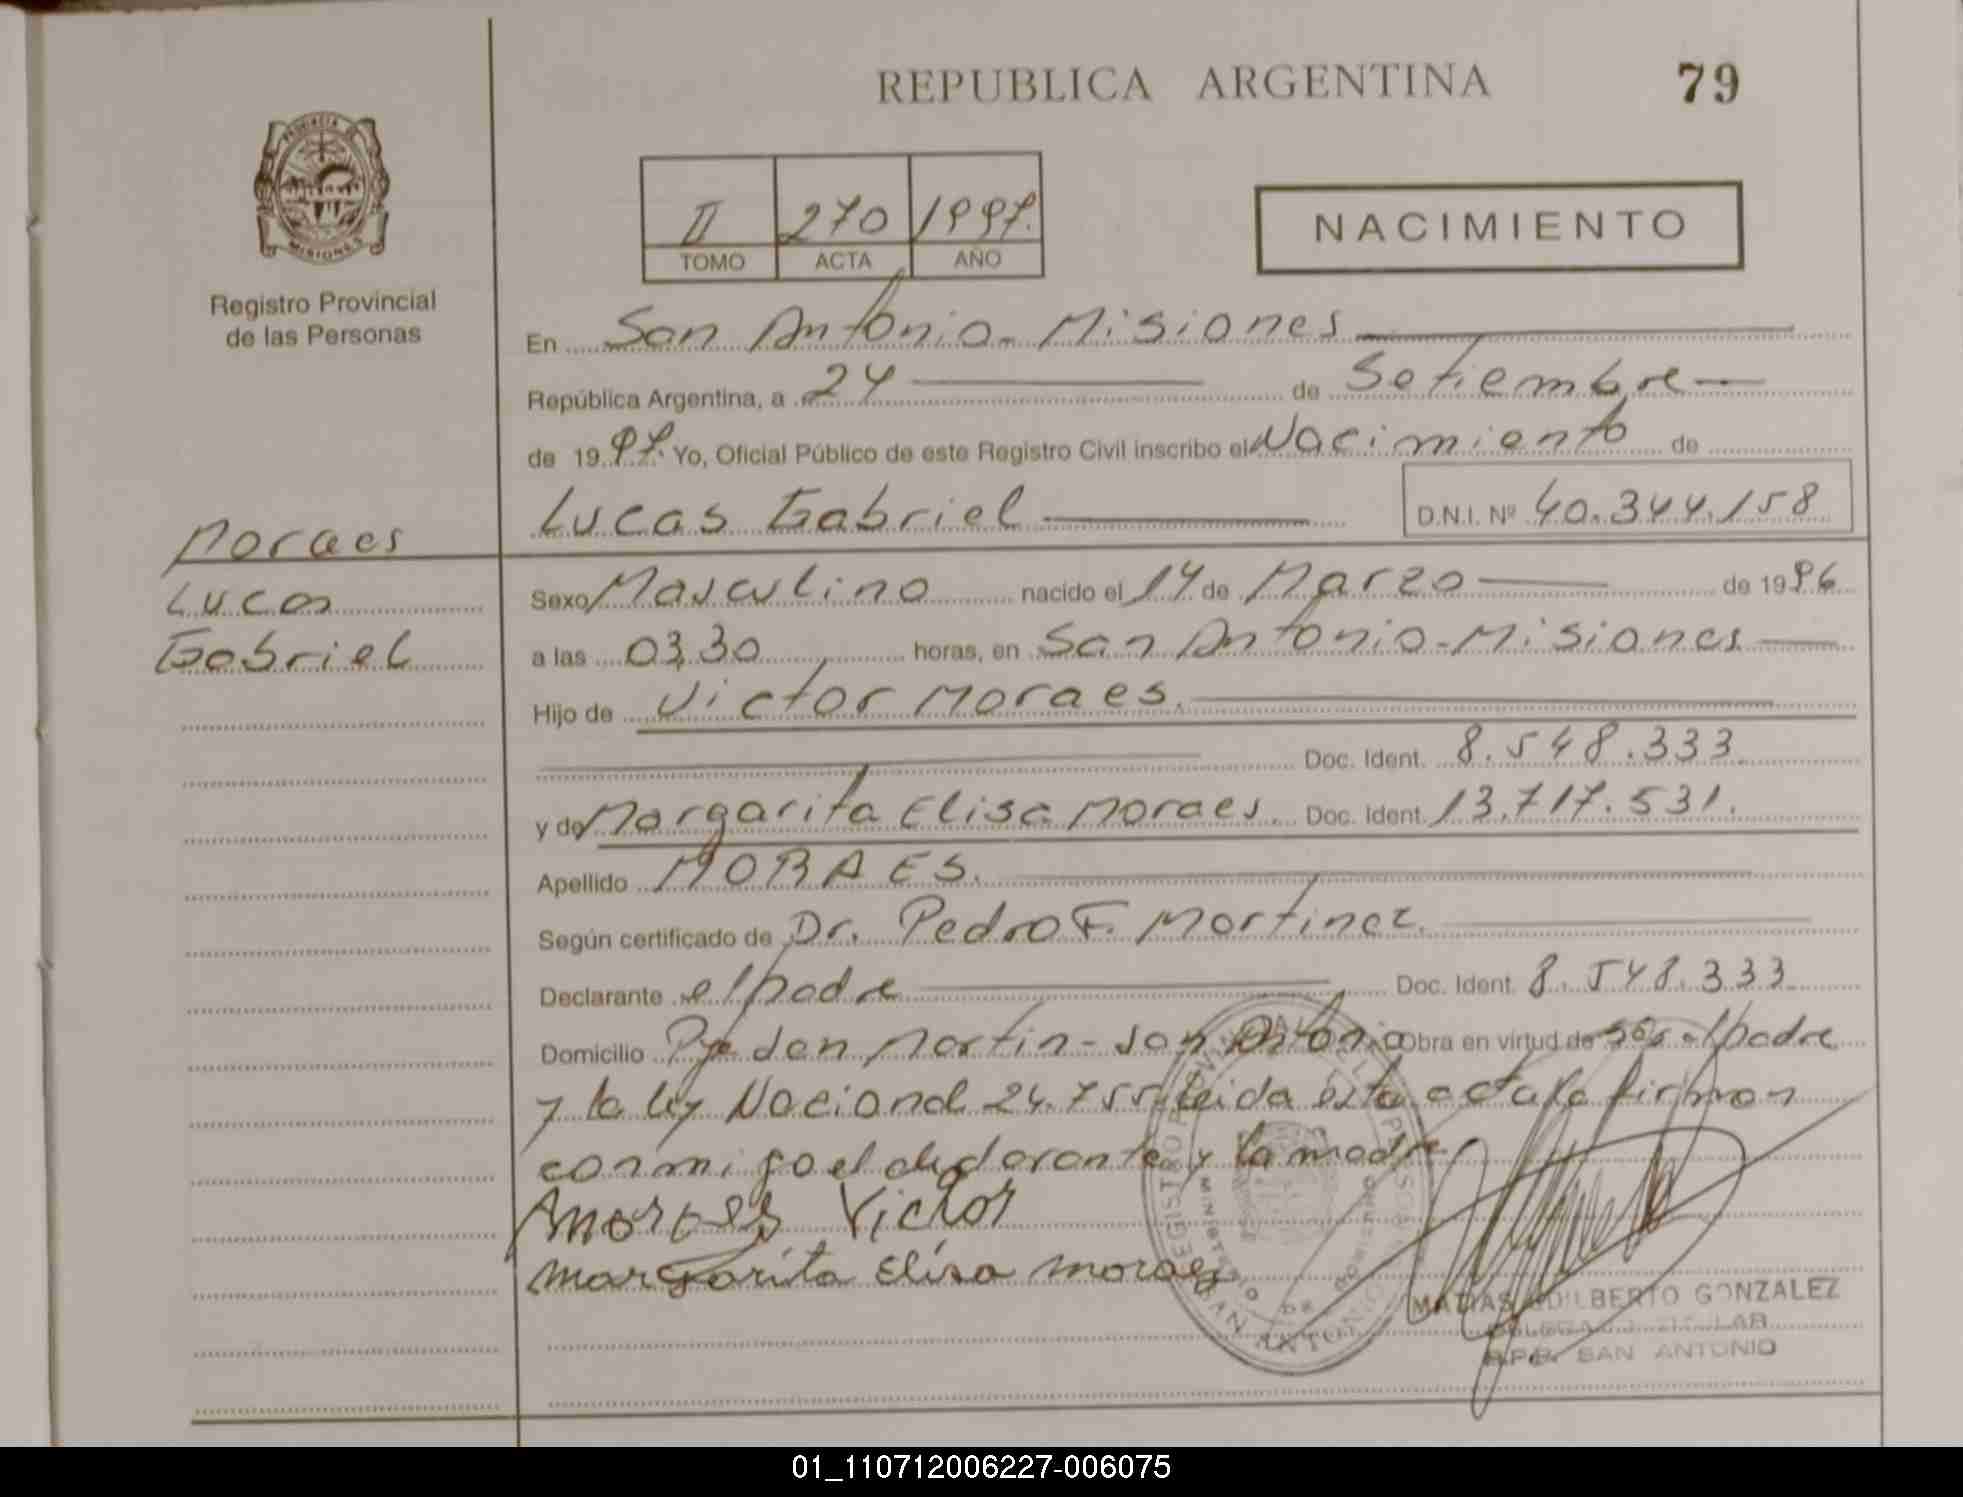 REPUBLICA ARGENTINA
79
PROVINCIA DE
MISIONES
Registro Provincial
de las Personas
II 270 1997.
TOMO ACTA AÑO
NACIMIENTO
En San Antonio - Misiones
República Argentina, a 24 de Setiembre
de 1997. Yo, Oficial Público de este Registro Civil inscribo el Nacimiento de
Lucas Gabriel D.N.I. Nº 40.344.158
Moraes
Lucas
Gabriel
Sexo Masculino nacido el 14 de Marzo de 1996
a las 03,30 horas, en San Antonio - Misiones
Hijo de Victor Moraes.
Doc. Ident. 8.548.333
y de Margarita Elisa Moraes. Doc. Ident. 13.717.531.
Apellido MORAES.
Según certificado de Dr. Pedro F. Martinez.
Declarante el padre Doc. Ident. 8.548.333
Domicilio Pje don Martin - San Antonio Obra en virtud de ser el padre
y la ley Nacional 24.755 leida esta acta la firman
conmigo el declarante y la madre
Victor
Margarita Elisa moraes
REGISTRO PROVINCIAL DE LAS PERSONAS
MINISTERIO DE GOBIERNO
SAN ANTONIO
MATIAS ADILBERTO GONZALEZ
DELEGADO TITULAR
R.P.P. SAN ANTONIO
01_110712006227-006075